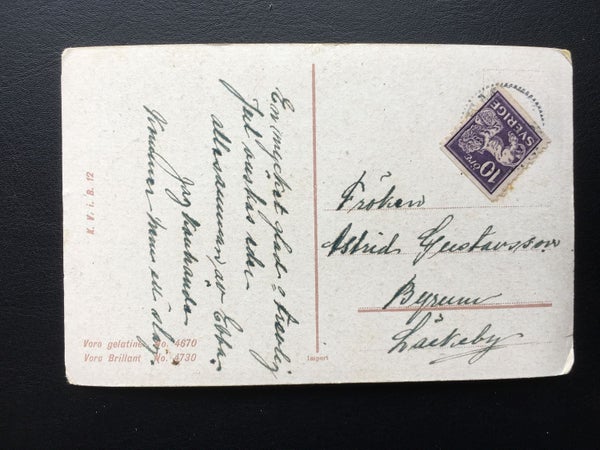 En mycket glad o trevlig
Jul önskas eder
allesamman av Ebba.
Jag kanhända
kommer hem en dag.
Fröken
Astrid Gustavsson
Byrum
Läckeby
10 ÖRE
SVERIGE
N. V. i. B. 12
Voro gelatine No. 4670
Voro Brillant No. 4730
Import